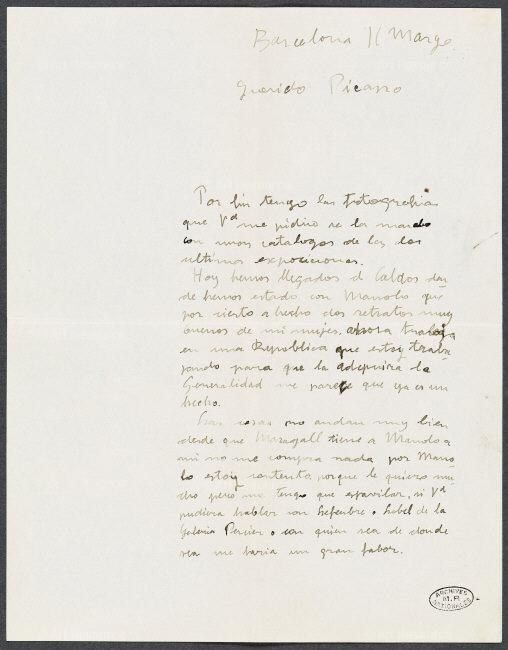 Barcelona 11 Março
Querido Picasso
Por fin tengo las fotografias
que Vd me pidió se la mando
con unos catalogos de las dos
ultimas exposiciones.
Hoy hemos llegados d Caldos don-
de hemos estado con Manolo que
por cierto a hecho dos retratos muy
buenos de mi mujer, ahora trabaja
en una Republica que estoy traba-
jando para que la adquiira la
Generalidad me parece que ya es un
hecho.
Las cosas no andan muy bien
desde que Maragall tiene a Manolo a
mi no me compra nada por Mano-
lo estoy contento porque le quiero mu-
cho pero me tengo que espavilar, si Vd
pudiera hablar con Lefenbre o Level de la
Galeria Percier o con quien sea de donde
sea me haria un gran fabor.
ARCHIVES
M.P.
NATIONALES